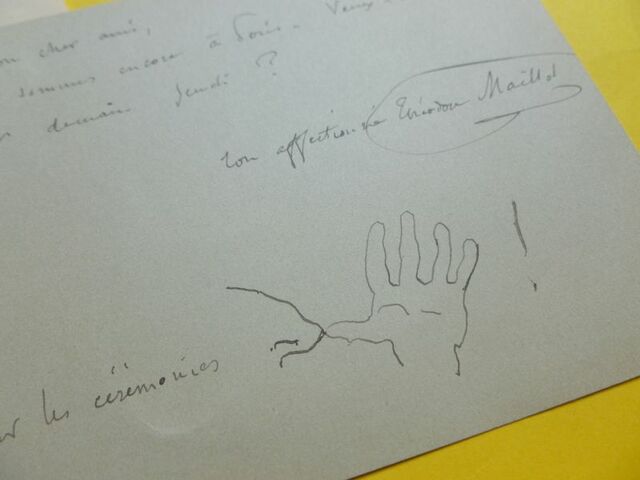 on cher ami,
sommes encore à Paris. Veux-
demain Jeudi ?
ton affectionné Théodon Maillot
!
ur les cérémonies